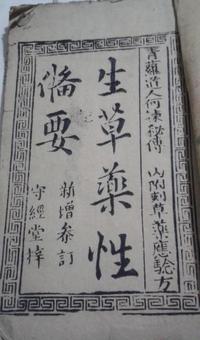 青蘿道人何諫秘傳 山附刻草藥應驗方
生草藥性
俻要
新增參訂
守經堂梓